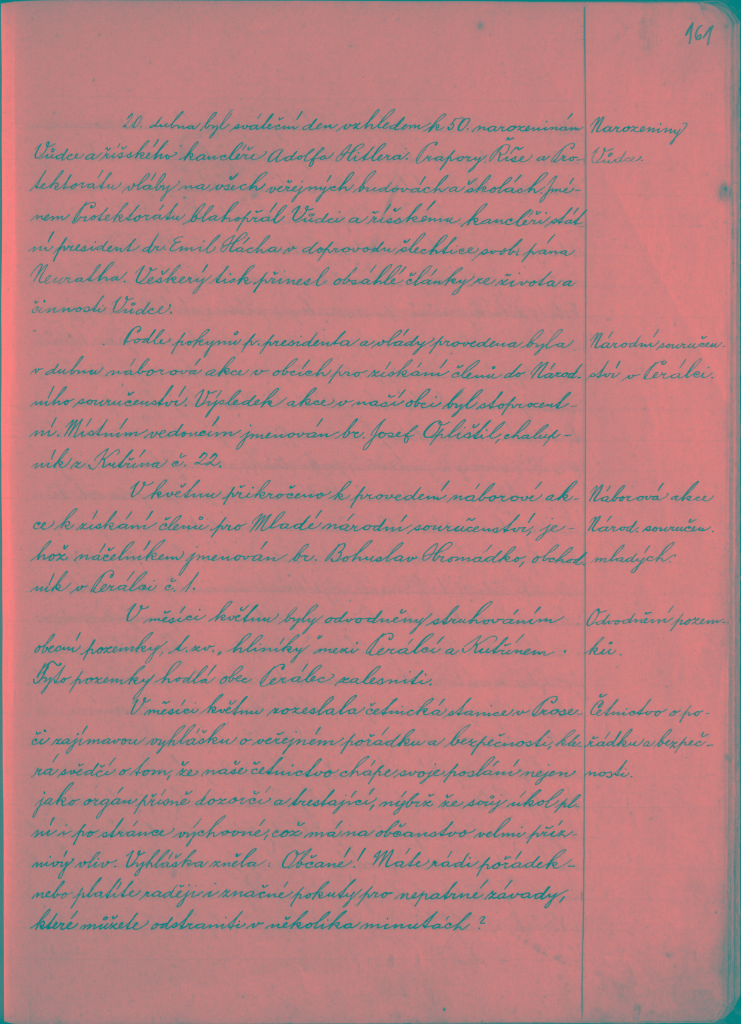 161
20. dubna byl sváteční den vzhledem k 50. narozeninám
Vůdce a říšského kancléře Adolfa Hitlera. Prapory Říše a Pro-
tektorátu vlály na všech veřejných budovách a školách. Jmé-
nem Protektorátu blahopřál Vůdci a říšskému kancléři stát-
ní president dr. Emil Hácha v doprovodu šlechtice svob. pána
Neuratha. Veškerý tisk přinesl obsáhlé články ze života a
činnosti Vůdce.
Narozeniny
Vůdce.
Podle pokynů p. presidenta a vlády provedena byla
v dubnu náborová akce v obcích pro získání členů do Národ-
ního souručenství. Výsledek akce v naší obci byl stoprocent-
ní. Místním vedoucím jmenován br. Josef Oplištil, chalup-
ník z Kutřína č. 22.
Národní souručen-
ství v Perálci.
V květnu přikročeno k provedení náborové ak-
ce k získání členů pro Mladé národní souručenství, je-
hož náčelníkem jmenován br. Bohuslav Hromádko, obchod-
ník v Perálci č. 1.
Náborová akce
Národ. souručen.
mladých.
V měsíci květnu byly odvodněny struhováním
obecní pozemky, t. zv. „hliníky" mezi Perálcí a Kutřínem.
Tyto pozemky hodlá obec Perálec zalesniti.
Odvodnění pozem-
ků.
V měsíci květnu rozeslala četnická stanice v Prose-
či zajímavou vyhlášku o veřejném pořádku a bezpečnosti, kte-
rá svědčí o tom, že naše četnictvo chápe svoje poslání nejen
jako orgán přísně dozorčí a trestající, nýbrž že svůj úkol pl-
ní i po stránce výchovné, což má na občanstvo velmi příz-
nivý vliv. Vyhláška zněla: Občané! Máte rádi pořádek -
nebo platíte raději i značné pokuty pro nepatrné závady,
které můžete odstraniti v několika minutách?
Četnictvo o po-
řádku a bezpeč-
nosti.